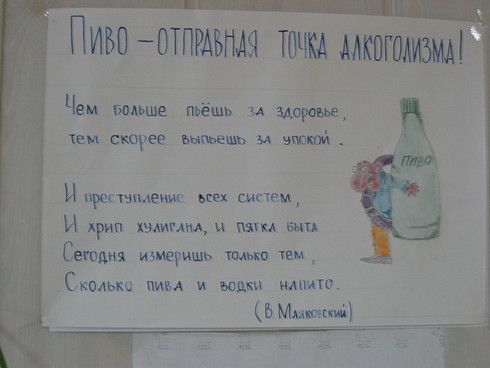 Пиво – отправная точка алкоголизма!
Чем больше пьёшь за здоровье,
тем скорее выпьешь за упокой.
пиво
И преступление всех систем,
И хрип хулигана, и пятна быта
Сегодня измеришь только тем,
Сколько пива и водки напито.
(В. Маяковский)